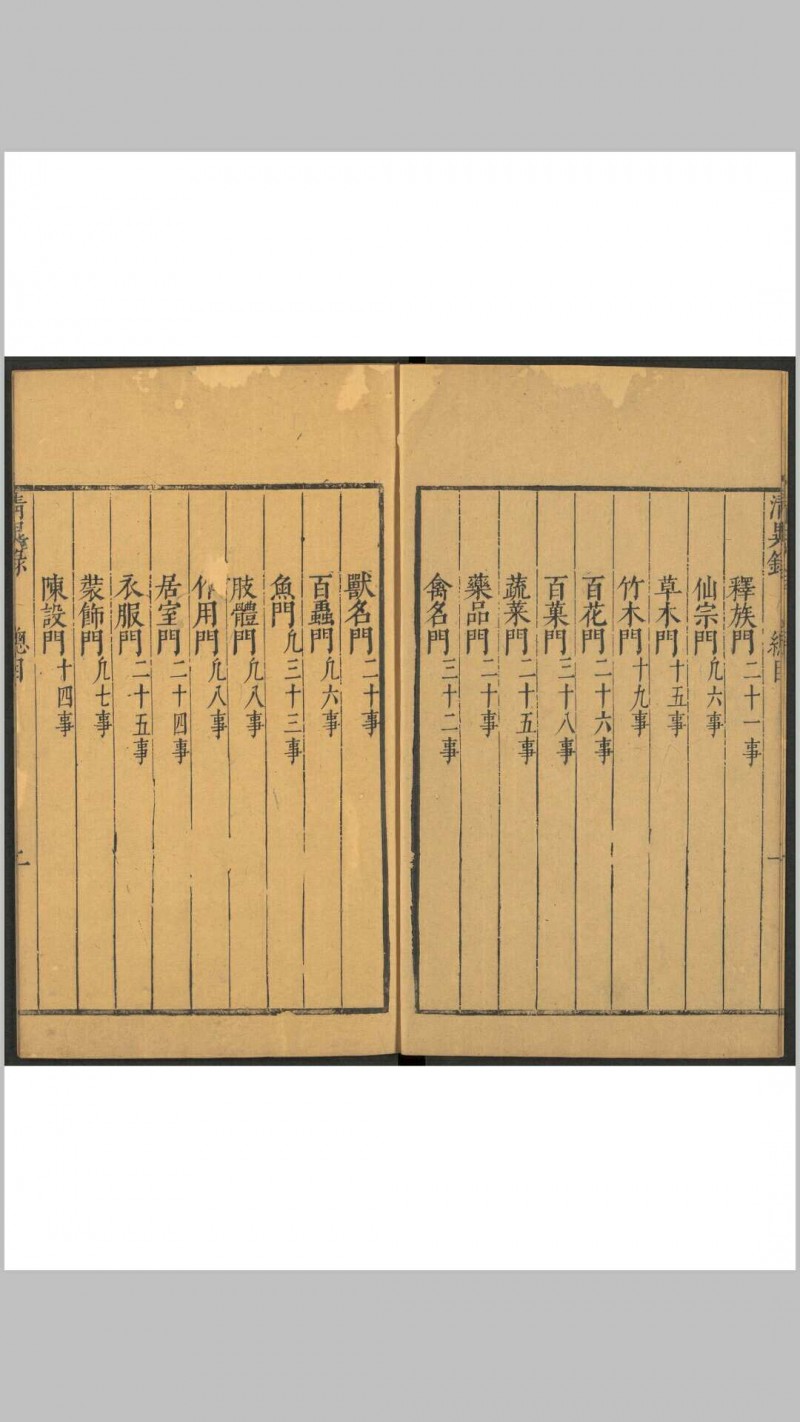 清異錄 總目 一
釋族門二十一事
仙宗門凢六事
草木門十五事
竹木門十九事
百花門二十六事
百菓門三十八事
蔬菜門二十五事
藥品門二十事
禽名門三十二事
獸名門二十事
百蟲門凢六事
魚門凢三十三事
肢體門凢八事
作用門凢八事
居室門二十四事
衣服門二十五事
裝飾門凢七事
陳設門十四事
清異錄 總目 二